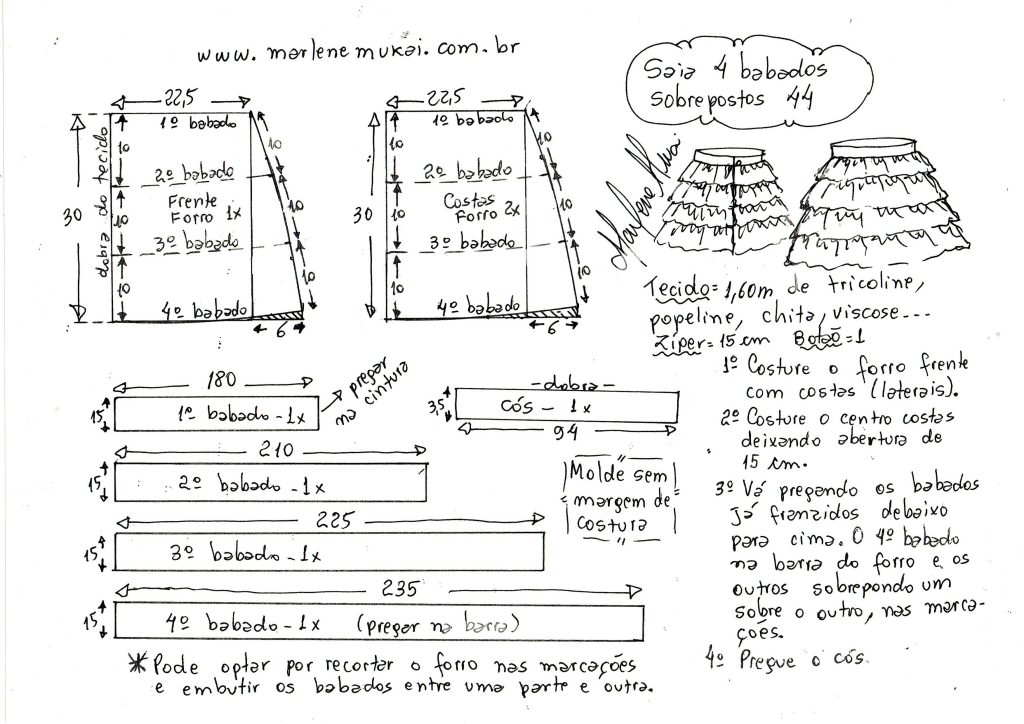 www.marlenemukai.com.br
Saia 4 babados
sobrepostos 44
22,5
1º babado
dobra do tecido
30
10
10
10
2º babado
Frente
Forro 1x
3º babado
4º babado
10
10
10
6
22,5
1º babado
30
10
10
10
2º babado
Costas
Forro 2x
3º babado
4º babado
10
10
10
6
Marlene Mukai
Tecido=1,60m de tricoline,
popeline, chita, viscose...
Zíper=15cm Botão=1
1º Costure o forro frente
com costas (laterais).
2º Costure o centro costas
deixando abertura de
15 cm.
3º Vá pregando os babados
já franzidos debaixo
para cima. O 4º babado
na barra do forro e os
outros sobrepondo um
sobre o outro, nas marca-
ções.
4º Pregue o cós.
180
15
1º babado-1x
pregar
na cintura
-dobra-
3,5
cós - 1x
94
210
15
2º babado -1x
Molde sem
margem de
costura
225
15
3º babado-1x
235
15
4º babado-1x (pregar na barra)
* Pode optar por recortar o forro nas marcações
e embutir os babados entre uma parte e outra.